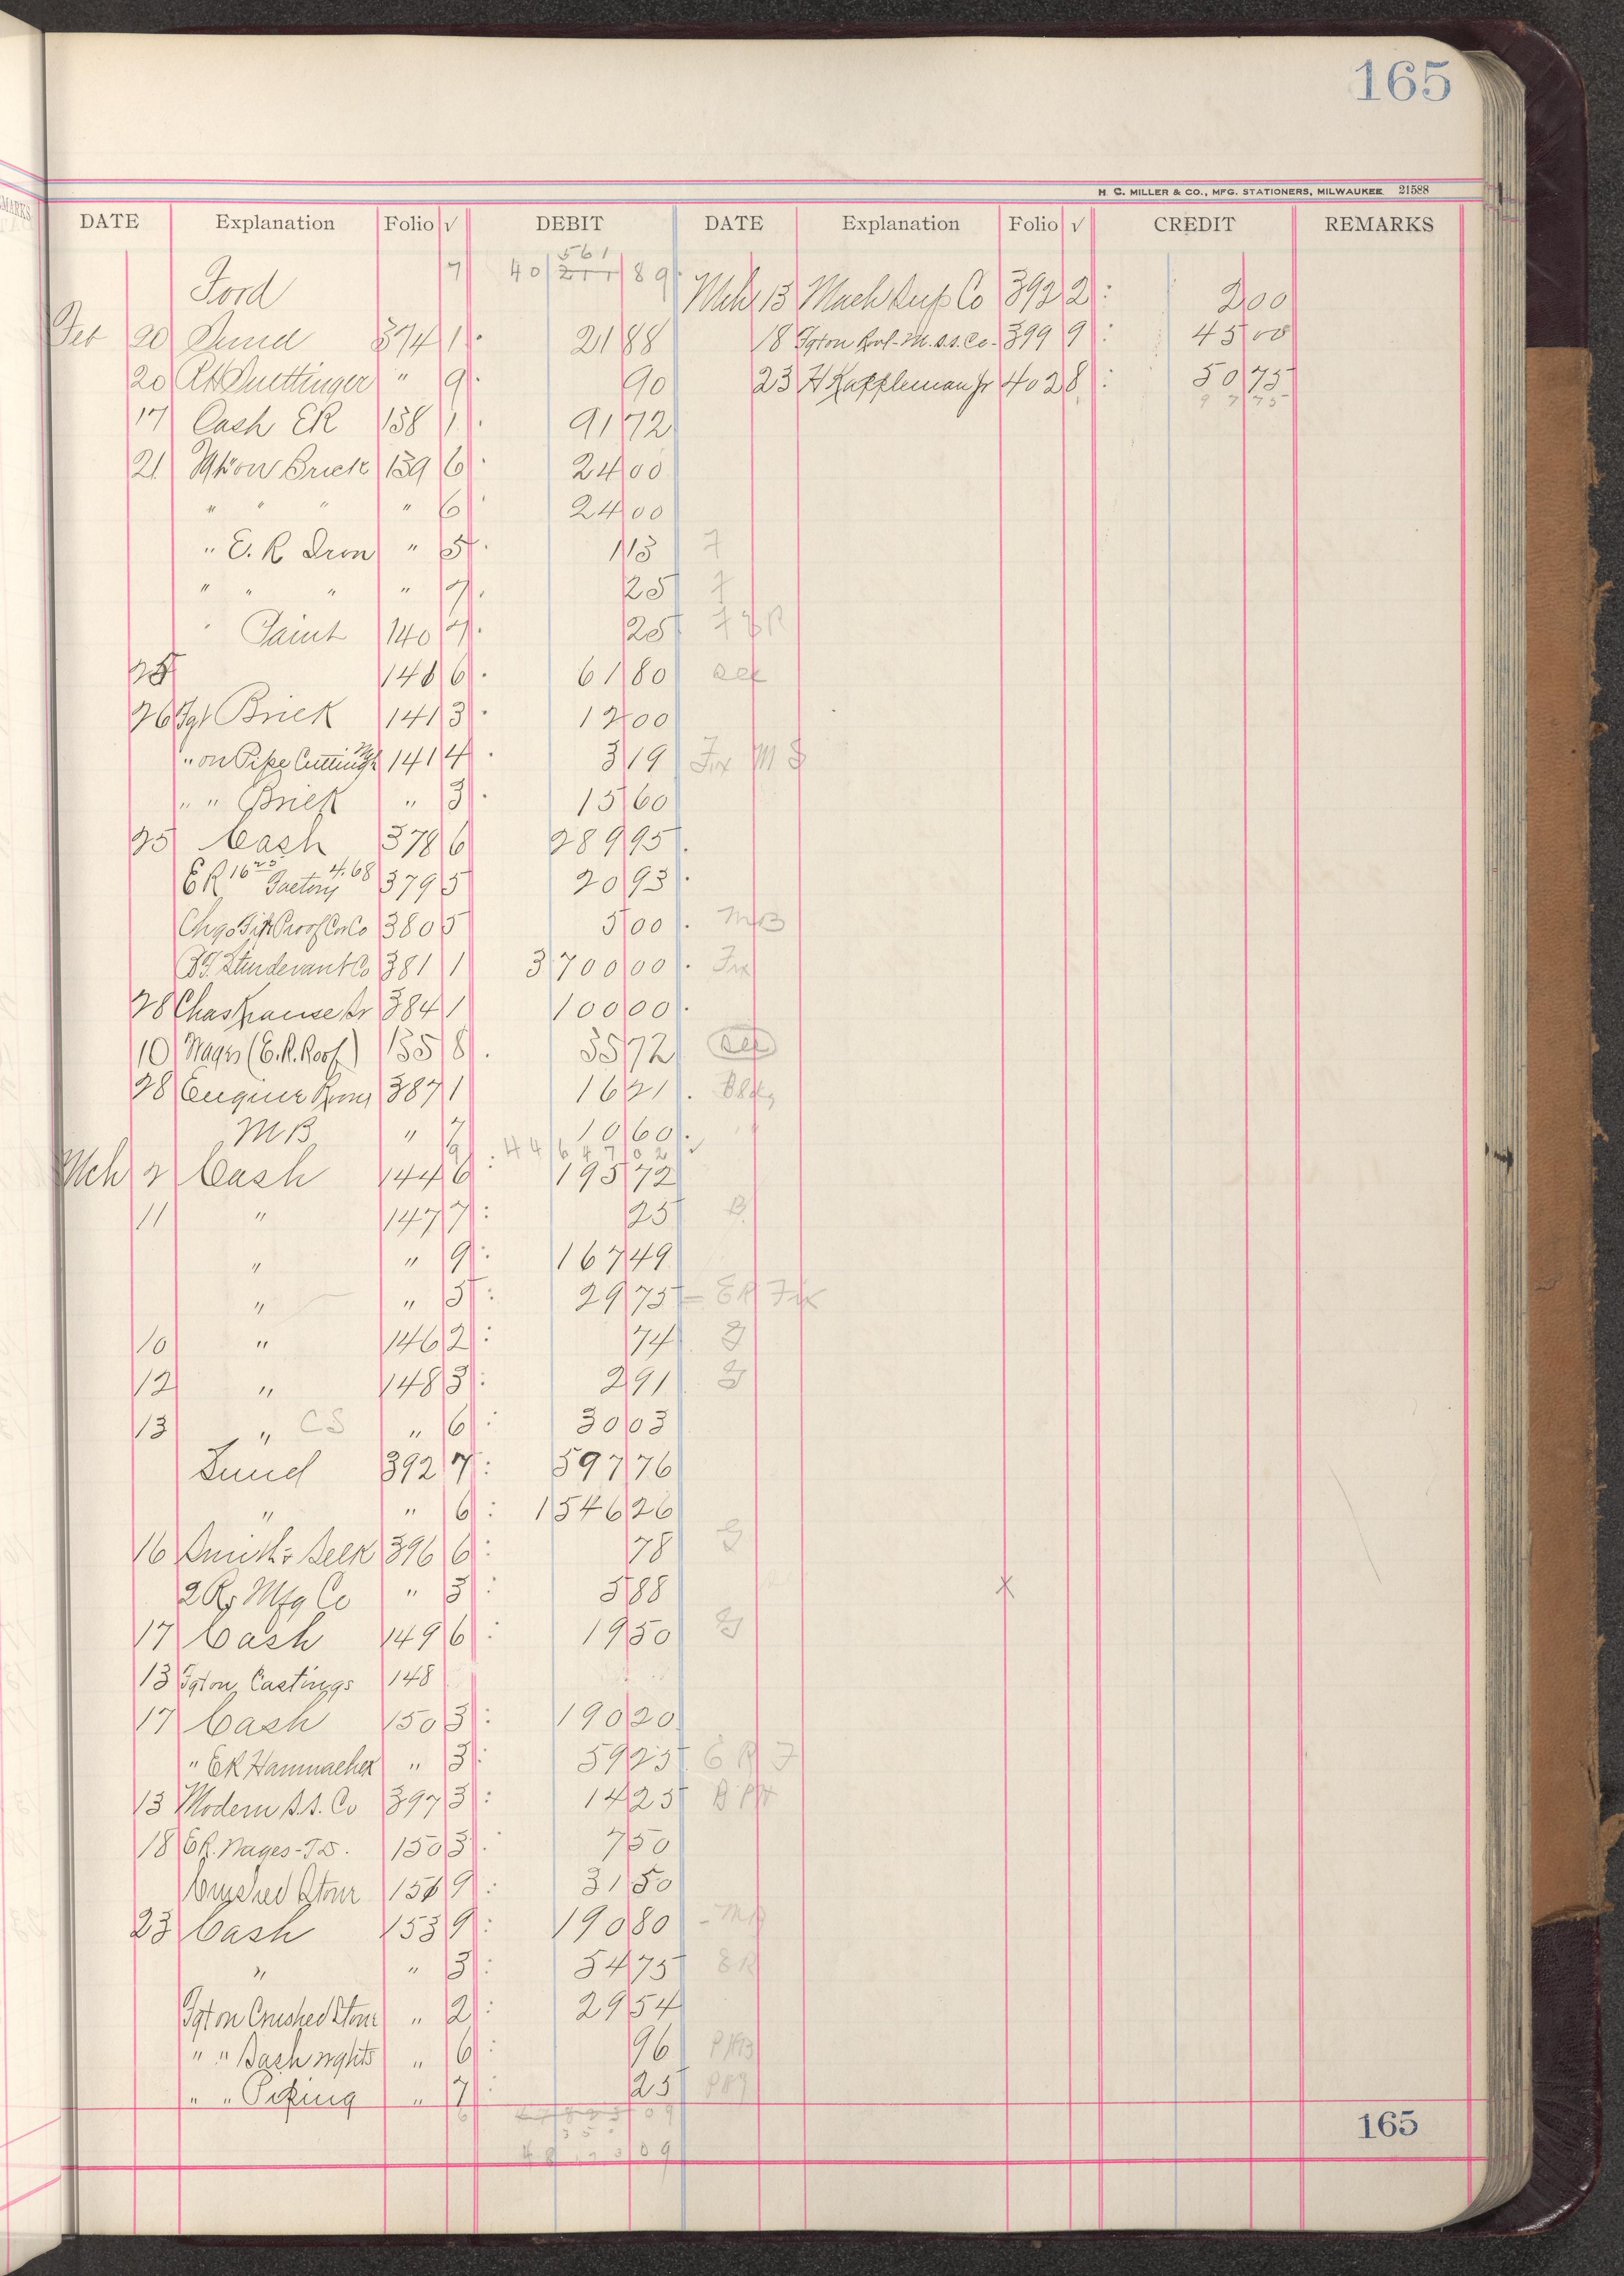 165
H. C. MILLER & CO., MFG. STATIONERS, MILWAUKEE 21588
DATE Explanation Folio √ DEBIT DATE Explanation Folio √ CREDIT REMARKS
Ford 7 40 561 89 Mch 13 Mach Sup Co 392 2 : 2 00
Feb 20 Sund 374 1 . 21 88 18 Fgton 399 9 : 45 00
20 " 9 . 90 23 H Kappleman Jr 402 8 : 50 75
97 75
17 Cash ER 138 1 . 91 72
21 Brick 139 6 . 24 00
" " " " 6 24 00
" E. R Iron " 5 . 1 13 7
" " " " 7 . 25 7
" Paint 140 7 . 25
25 140 6 . 61 80
26 Fgt Brick 141 3 . 12 00
" on Pipe Cutting Mch 141 4 . 3 19 Fix M
" " Brick " 3 . 15 60
25 Cash 378 6 289 95 .
ER 16 25 Factory 4.68 379 5 20 93 .
Chgo Fire Proof Co 380 5 5 00 . MB
B.F. Sturdevant Co 381 1 3 700 00 . Fix
28 Chas Krause Sr 384 1 100 00 .
10 Wages (E.R. Roof) 135 8 . 55 72
28 Engine Room 387 1 16 21 . Bldg
MB " 7 10 60 .
9 44 647 02 √
Mch 2 Cash 144 6 : 195 72
11 " 147 7 : 25 B
" " 9 : 167 49
" " 5 : 29 75 – ER Fix
10 " 146 2 : 74
12 " 148 3 : 2 91
13 " CS " 6 : 30 03
Sund 392 7 : 597 76
" " 6 : 1 546 26
16 396 6 : 78
2 Rs Mfg Co " 3 : 5 88 X
17 Cash 149 6 : 19 50
13 Fgt on Castings 148
17 Cash 150 3 : 190 20
" ER Hammacher " 3 : 59 25 E R F
13 Modern S.S. Co 397 3 : 14 25
18 ER. Wages - 150 3 : 7 50
Crushed Stone 151 9 : 31 50
23 Cash 153 9 : 190 80
" " 3 : 54 75 ER
Fgt on Crushed Stone " 2 : 29 54
" " Sash wghts " 6 : 96
" " Piping " 7 : 25
6 09
09
165